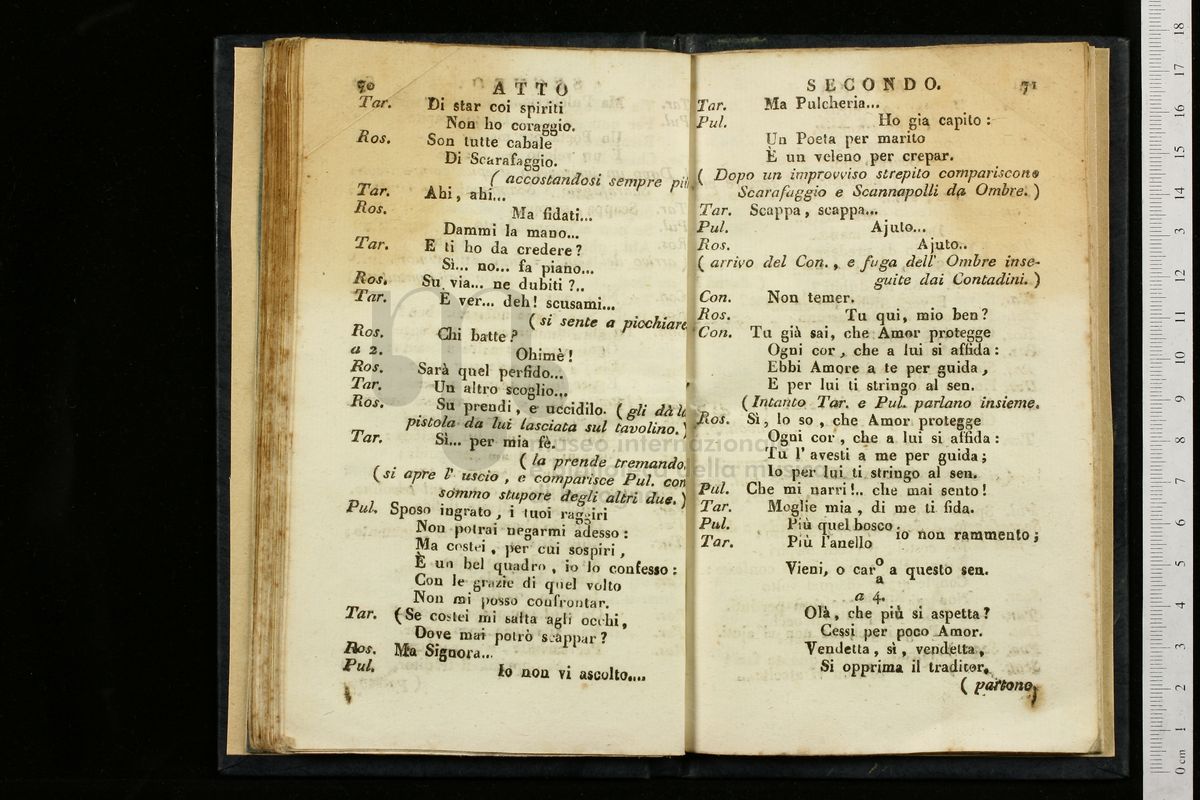 70 ATTO
Tar. Di star coi spiriti
Non ho coraggio.
Ros. Son tutte cabale
Di Scarafaggio.
( accostandosi sempre più.
Tar. Ahi, ahi...
Ros. Ma fidati...
Dammi la mano...
Tar. E ti ho da credere?
Sì... no... fa piano...
Ros. Su via... ne dubiti?..
Tar. È ver... deh! scusami...
( si sente a picchiare
Ros. Chi batte?
a 2. Ohimè!
Ros. Sarà quel perfido...
Tar. Un altro scoglio...
Ros. Su prendi, e uccidilo. ( gli dà la
pistola da lui lasciata sul tavolino. )
Tar. Sì... per mia fè.
( la prende tremando.
( si apre l' uscio, e comparisce Pul. con
sommo stupore degli altri due. )
Pul. Sposo ingrato, i tuoi raggiri
Non potrai negarmi adesso:
Ma costei, per cui sospiri,
È un bel quadro, io lo confesso:
Con le grazie di quel volto
Non mi posso confrontar.
Tar. (Se costei mi salta agli occhi,
Dove mai potrò scappar?
Ros. Ma Signora...
Pul. Io non vi ascolto....
SECONDO. 71
Tar. Ma Pulcheria...
Pul. Ho già capito:
Un Poeta per marito
È un veleno per crepar.
( Dopo un improvviso strepito compariscono
Scarafaggio e Scannapolli da Ombre. )
Tar. Scappa, scappa...
Pul. Ajuto...
Ros. Ajuto..
( arrivo del Con., e fuga dell' Ombre inse-
guite dai Contadini. )
Con. Non temer.
Ros. Tu qui, mio ben?
Con. Tu già sai, che Amor protegge
Ogni cor, che a lui si affida:
Ebbi Amore a te per guida,
E per lui ti stringo al sen.
(Intanto Tar. e Pul. parlano insieme.
Ros. Sì, lo so, che Amor protegge
Ogni cor, che a lui si affida:
Tu l' avesti a me per guida;
Io per lui ti stringo al sen.
Pul. Che mi narri!.. che mai sento!
Tar. Moglie mia, di me ti fida.
Pul. Più quel bosco
io non rammento;
Tar. Più l'anello
Vieni, o caro a questo sen.
a
a 4.
Olà, che più si aspetta?
Cessi per poco Amor.
Vendetta, sì, vendetta,
Si opprima il traditor.
( partono.
museo internazionale
e biblioteca della musica
0 cm 1 2 3 4 5 6 7 8 9 10 11 12 13 14 15 16 17 18